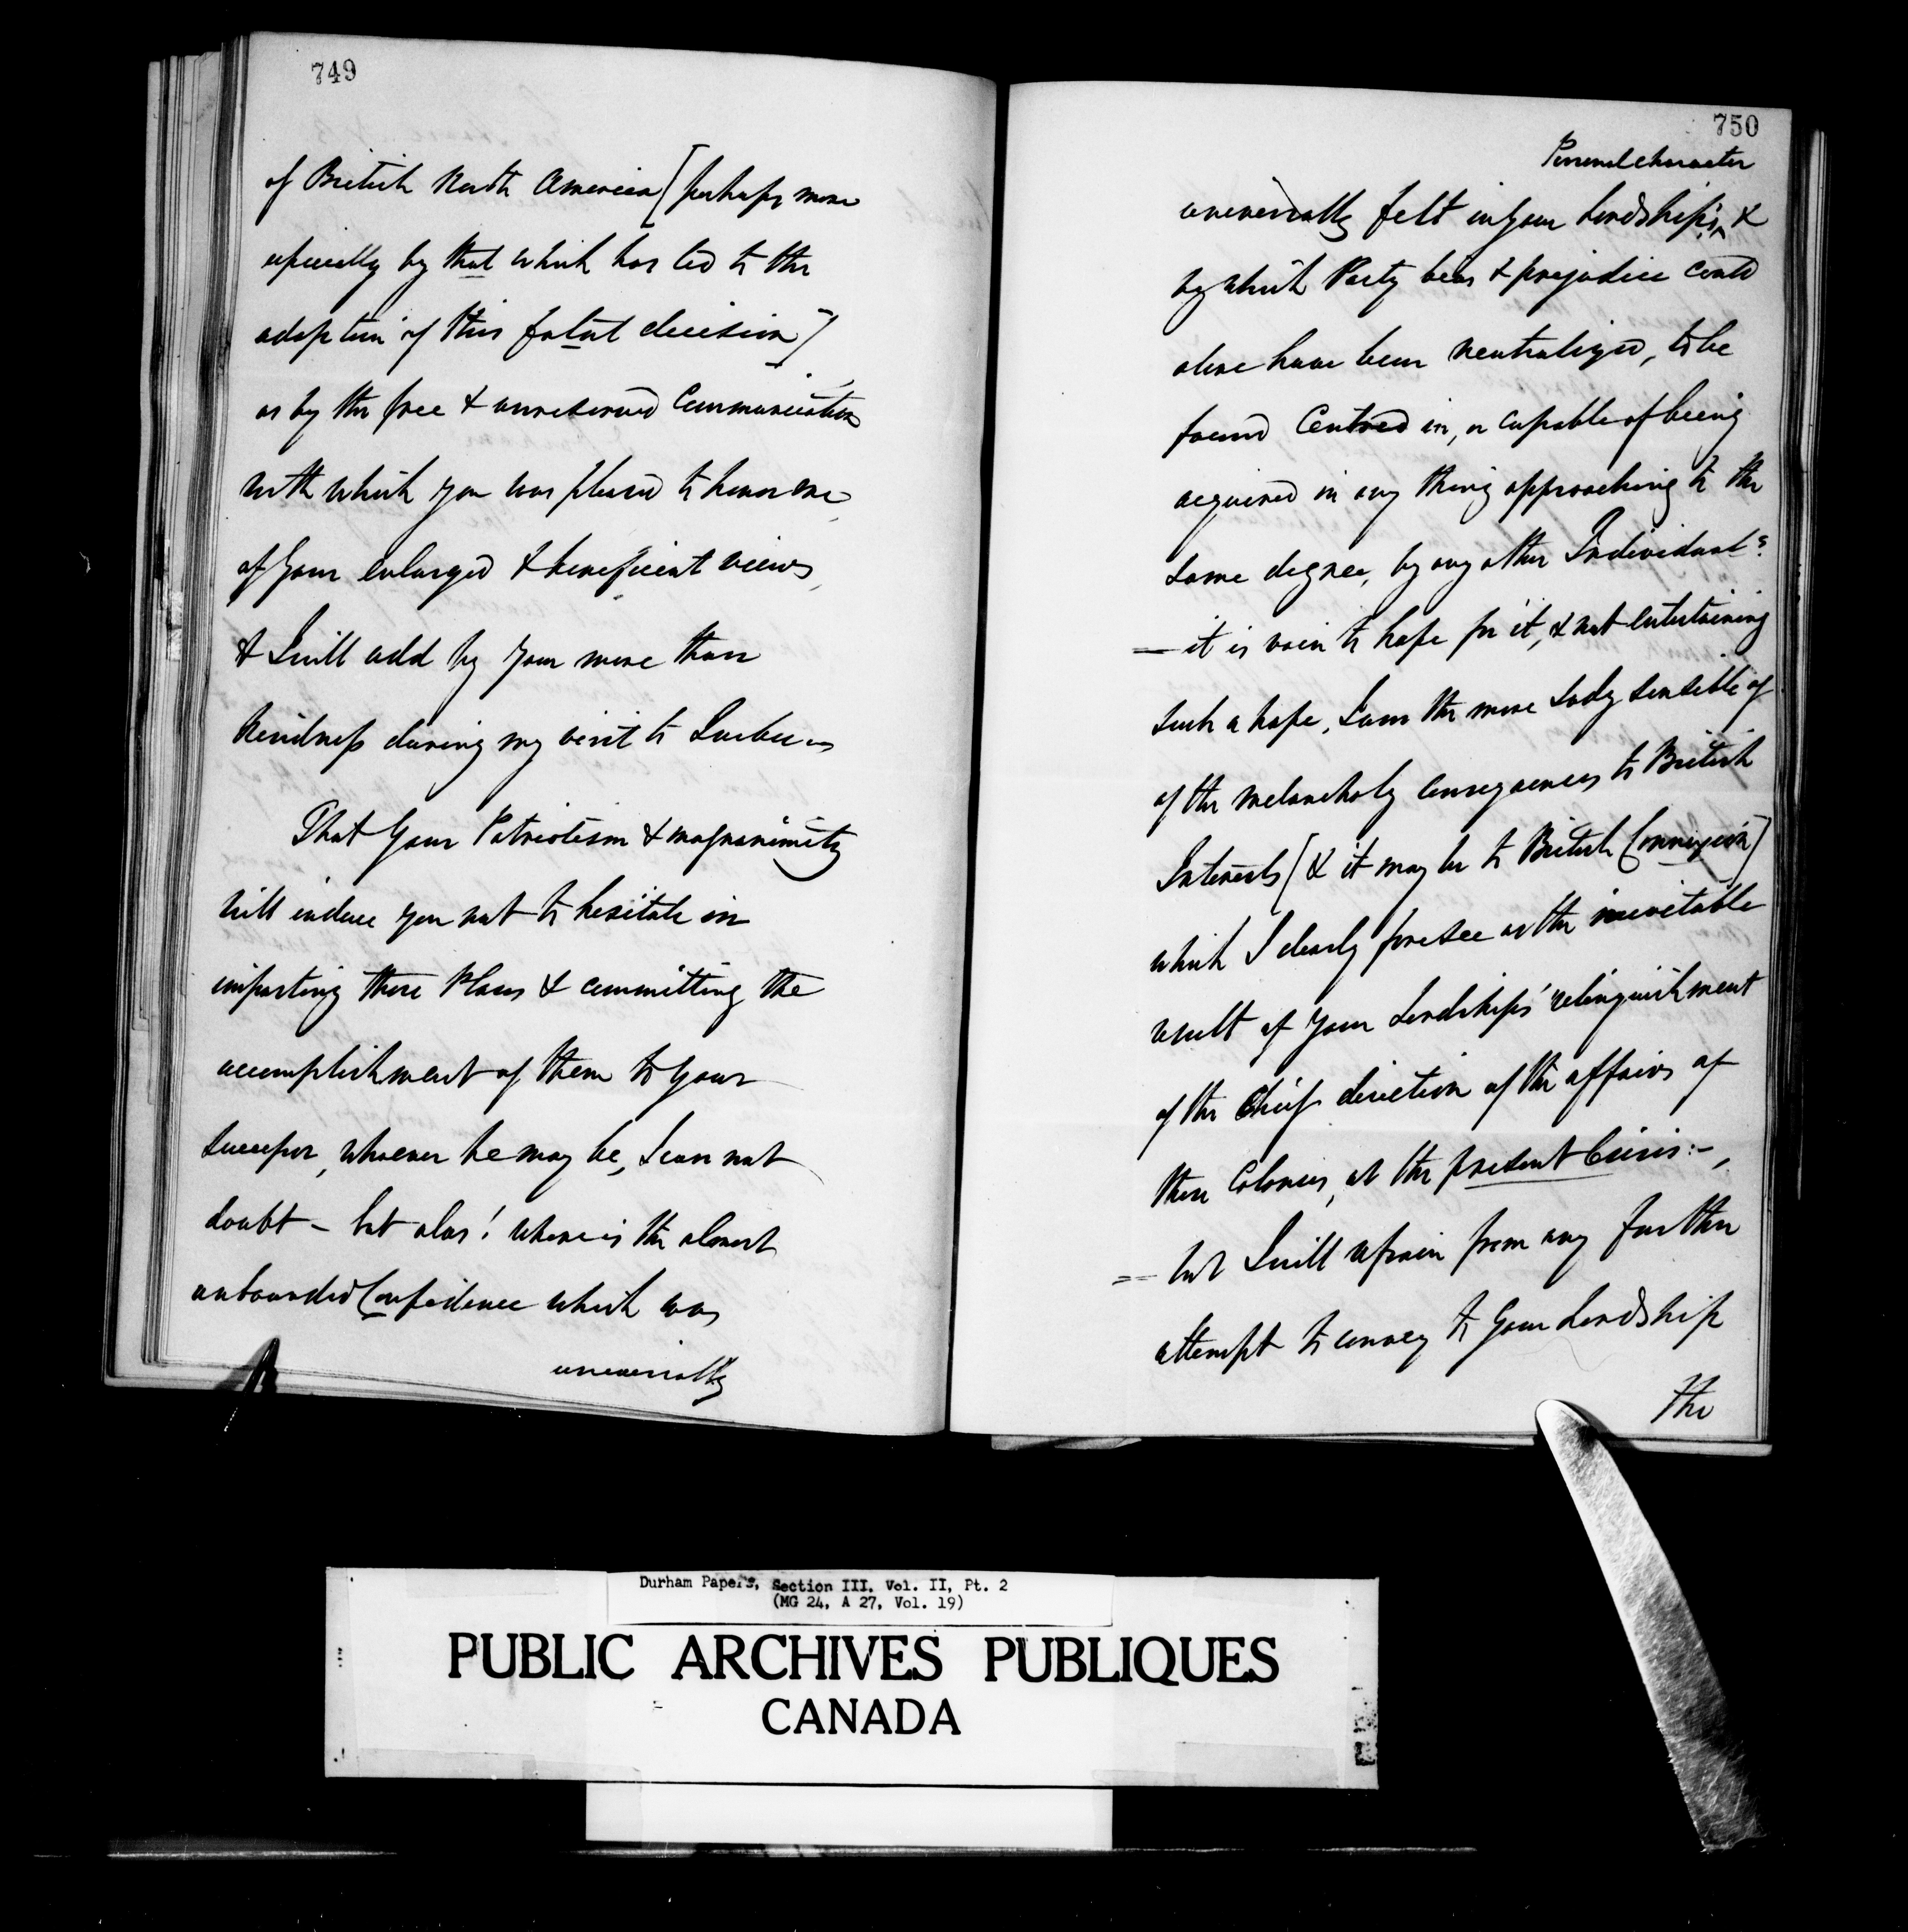 749
of British North America [perhaps more
especially by that which has led to the
adoption of this fatal decision]
as by the free & unreserved Communication
with which you was pleased to honor me
of Your enlarged & beneficient views,
& I will add by Your more than
Kindness during my visit to Quebec
That Your Patriotism & magnanimity
will induce you not to hesitate in
imparting these Plans & committing the
accomplishment of them to Your
Successor, whoever he may be, I can not
doubt – but alas! where is the almost
unbounded Confidence which was
universally
750
Personal character
universally felt in Your Lordship's ‸ &
by which Party bias & prejudice could
alone have been neutralized, to be
found Centred in, or capable of being
acquired in any thing approaching to the
same degree, by any other Individual?
— it is vain to hope for it, & not entertaining
such a hope, I am the more Sadly sensible of
of the melancholy consequences to British
Interests [& it may be to British Connexion]
which I clearly foresee as the inevitable
result of Your Lordships' relinquishment
of the Chief direction of the affairs of
these Colonies, at the present Crisis:–
= but I will refrain from any further
attempt to convey to Your Lordship
the
Durham Papers, Section III. Vol. II, Pt. 2
(MG 24, A 27, Vol. 19)
PUBLIC ARCHIVES PUBLIQUES
CANADA